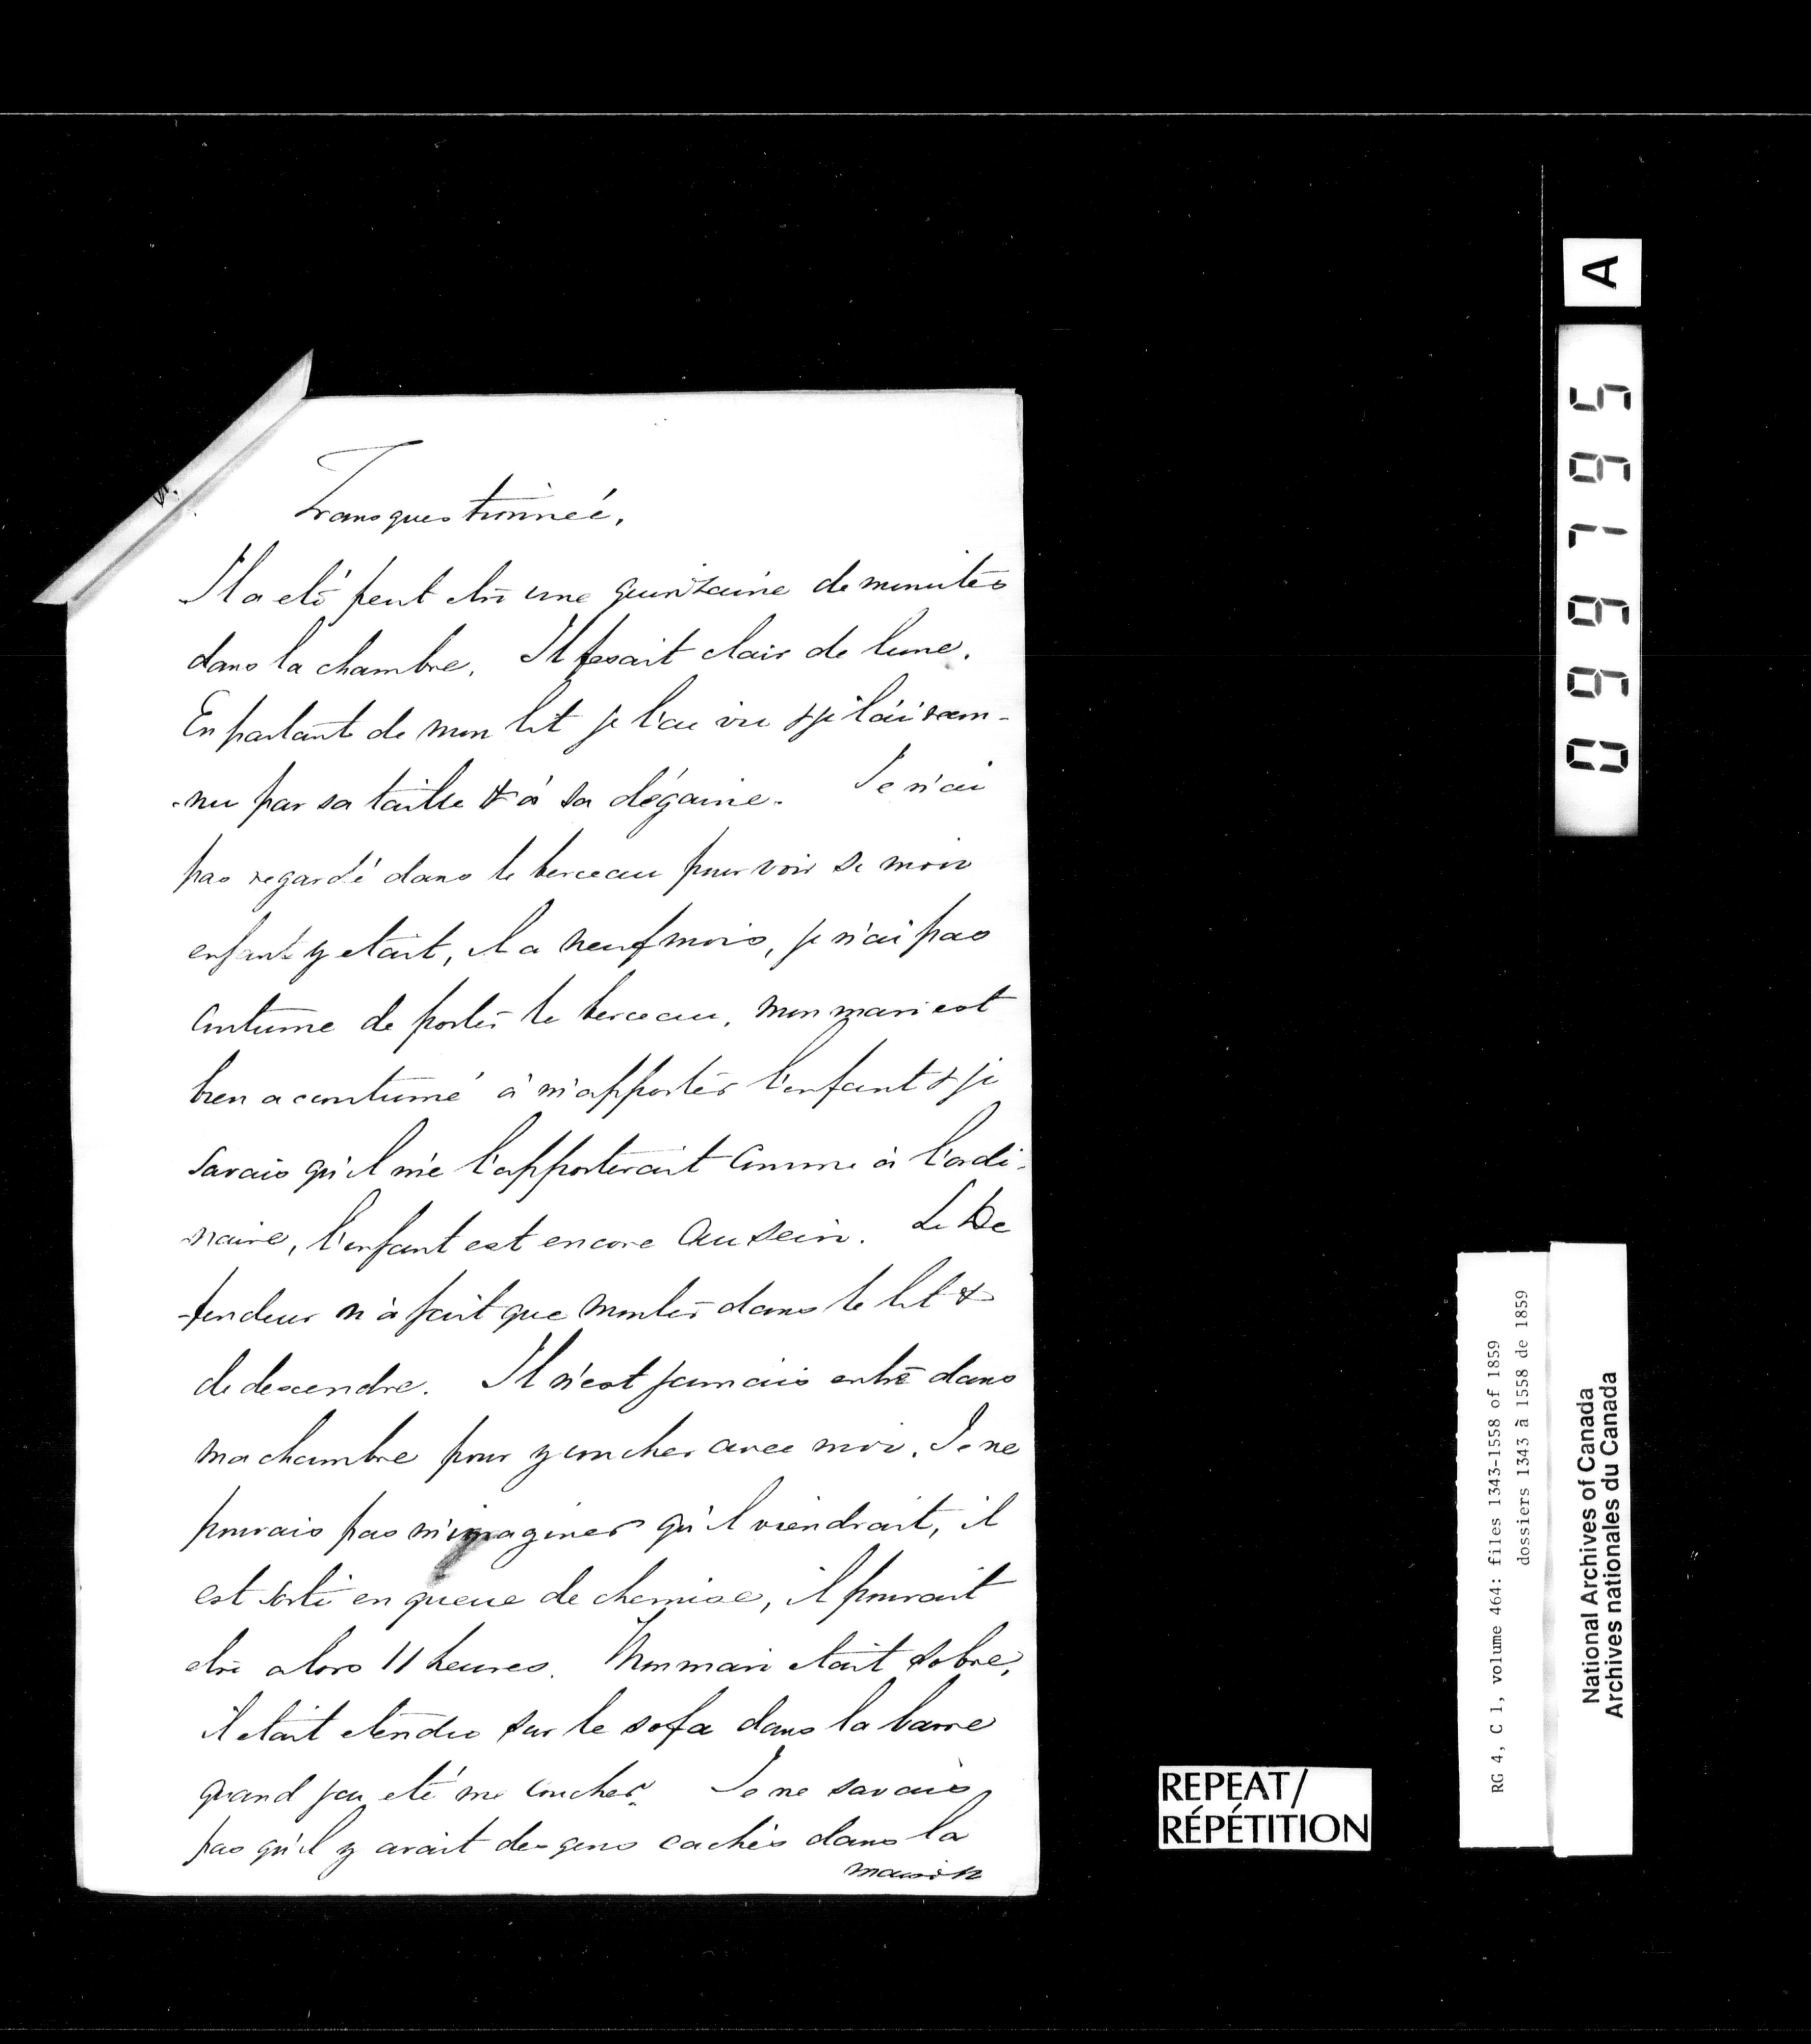 Transquestionnée.
Il a eté peut etre une quinzaine de minutes
dans la chambre. Il fesait clair de lune.
En partant de mon lit je l'ai vu & je l'ai recon-
-nu par sa taille & à sa dégaine. Je n'ai
pas regardé dans le berceau pour voir si mon
enfant y etait, il a neuf mois, je n'ai pas
coutume de porter le berceau, mon mari est
bien acoutumé à m'apporter l'enfant & je
savais qu'il me l'apporterait comme à l'ordi-
naire, l'enfant est encore au sein. Le De
-fendeur n'a fait que monter dans le lit &
de descendre. Il n'est jamais entré dans
ma chambre pour y coucher avec moi. Je ne
pouvais pas m'imaginer qu'il viendrait, il
est sorti en queue de chemise, il pouvait
etre alors 11 heures. Mon mari etait sobre,
il etait etendu sur le sofa dans la barre
quand j'ai eté me coucher. Je ne savais
pas qu'il y avait des gens cachés dans la
maison
A
0996795
REPEAT/
RÉPÉTITION
RG 4, C 1, volume 464: files 1343-1558 of 1859
dossiers 1343 à 1558 de 1859
National Archives of Canada
Archives nationales du Canada